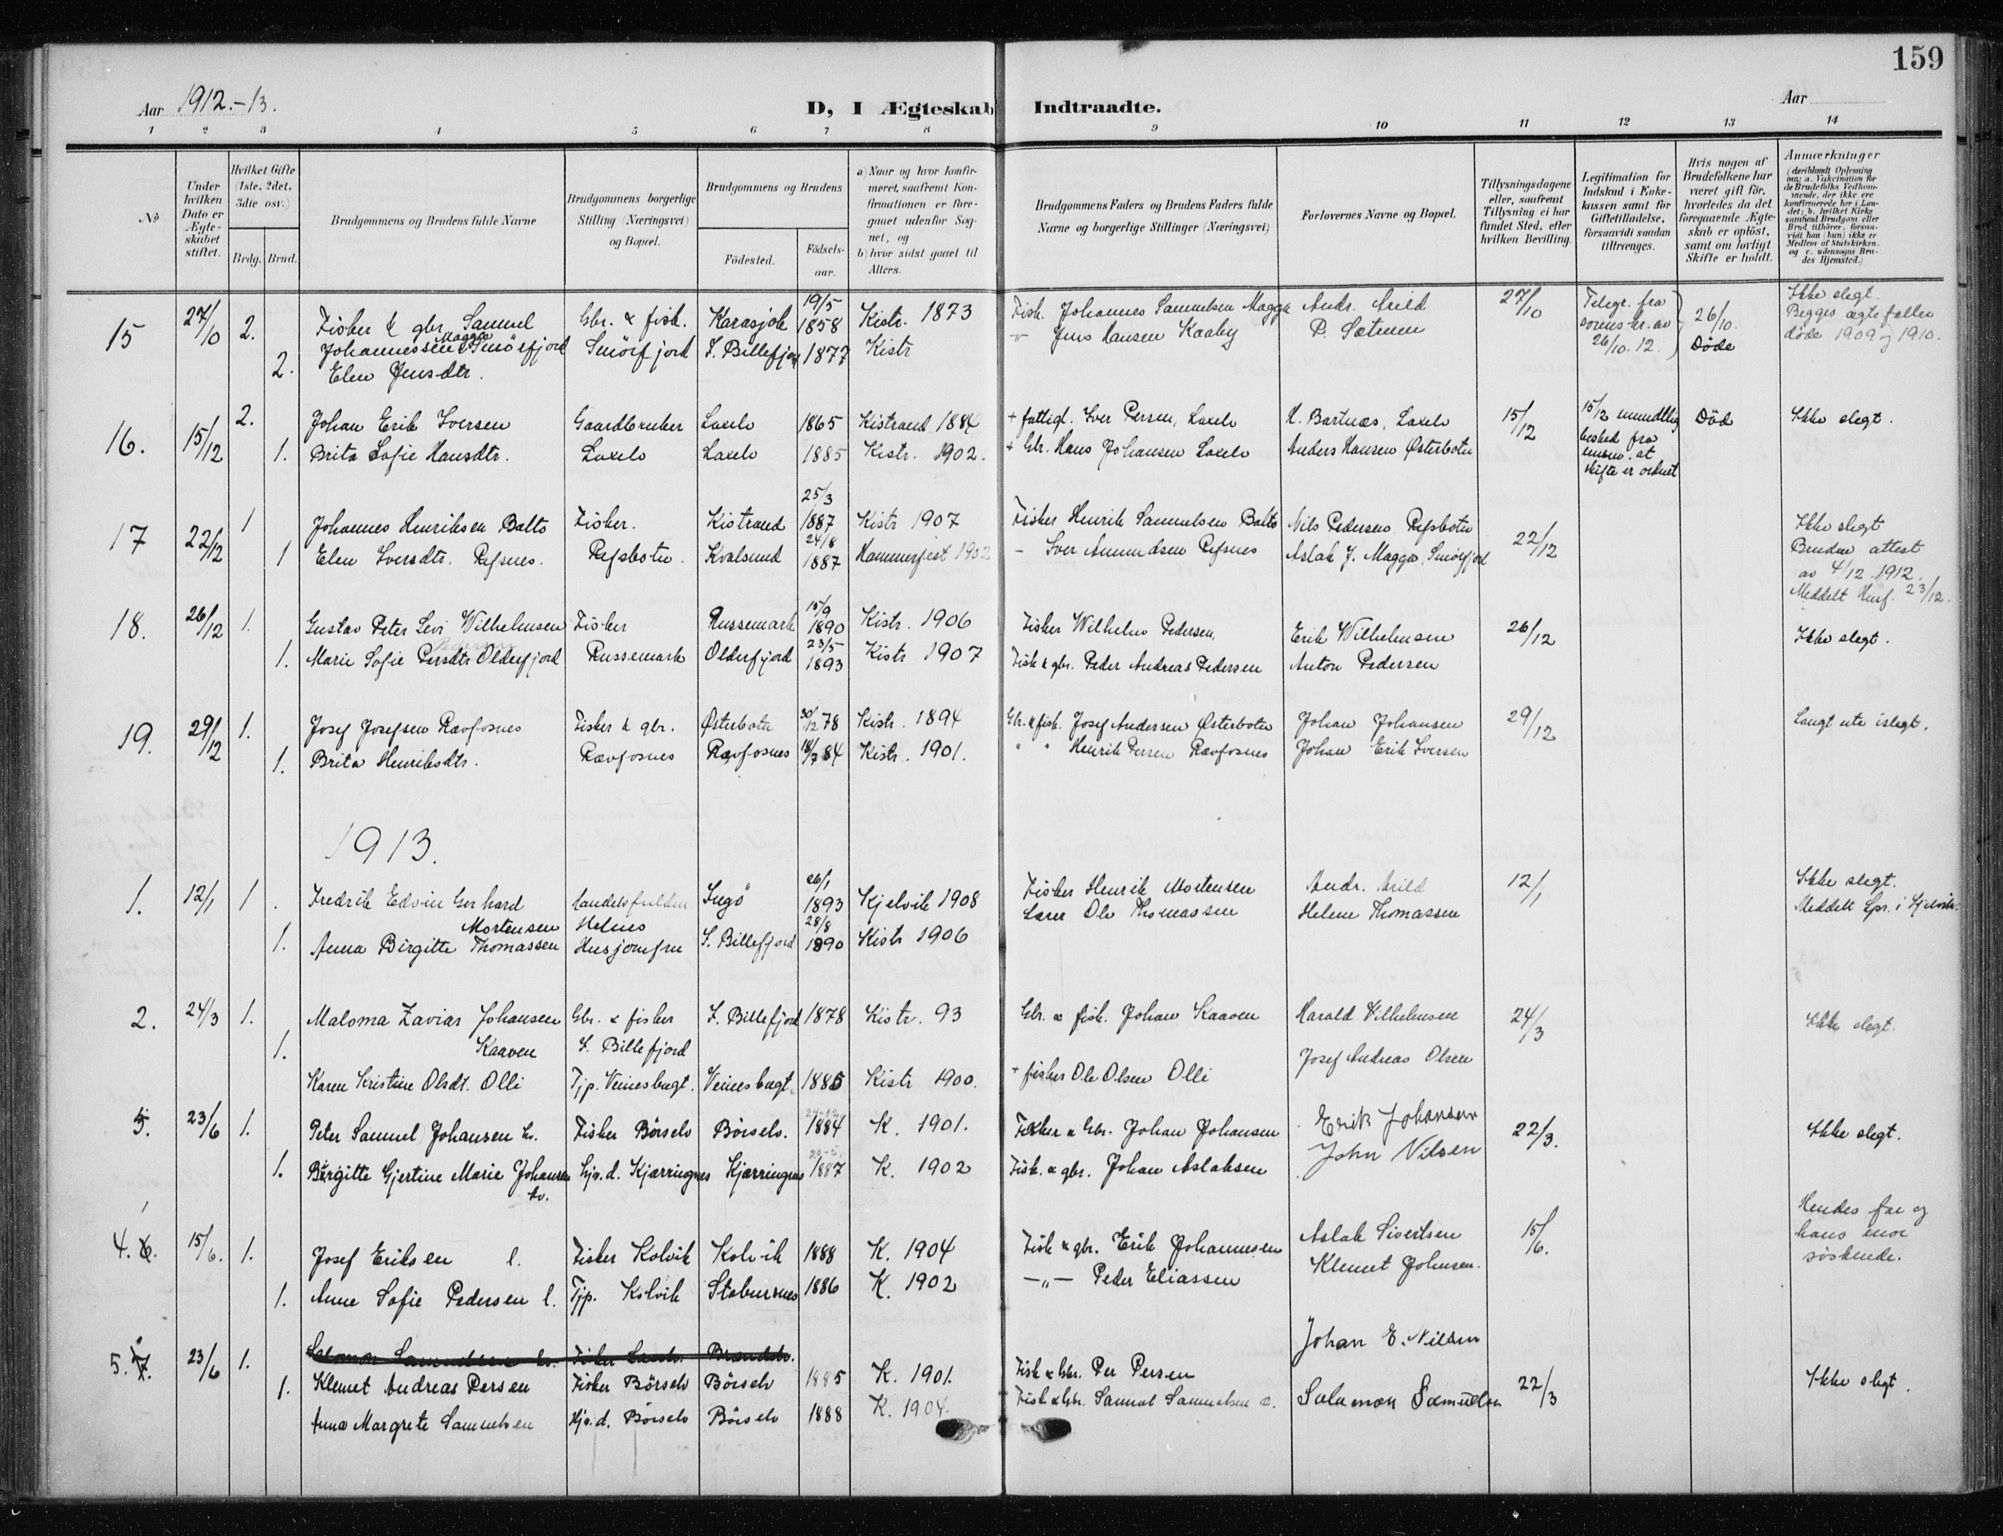 159
Aar 1912.-13.
D, I Ægteskab Indtraadte.
Aar
1 2 3 4 5 6 7 8 9 10 11 12 13 14
No
Under hvilken Dato er Ægteskabet stiftet.
Hvilket Gifte (1ste, 2det, 3die osv.)
Brdg. Brud.
Brudgommens og Brudens fulde Navne
Brudgommens borgerlige Stilling (Næringsvei) og Bopæl.
Brudgommens og Brudens
Fødested.
Fødselsaar.
a) Naar og hvor konfirmeret, saafremt Konfirmationen er foregaaet udenfor Sognet, og
b) hvor sidst gaaet til Alters.
Brudgommens Faders og Brudens Faders fulde Navne og borgerlige Stillinger (Næringsvei)
Forlovernes Navne og Bopæl.
Tillysningsdagene eller, saafremt Tillysning ei har fundet Sted, efter hvilken Bevilling.
Legitimation for Indskud i Enkekassen samt for Giftetilladelse, forsaavidt saadan tiltrænges.
Hvis nogen af Brudefolkene har været gift før, hvorledes da det foregaaende Ægteskab er opløst, samt om lovligt Skifte er holdt.
Anmærkninger
15 27/10 2. Fisker & gbr. Samuel Gbr. & fisk. Karasjok 19/5 1858 Kistr. 1873 Fisk. Johannes Samuelsen Magga Andr. Arild 27/10 Telegr. fra sorenskr. av 26/10. 12. 26/10. Døde Ikke slegt. Begges ægtefæller døde 1909 og 1910.
Johannessen Magga Smörfjord Smörfjord
2. Elen Jensdtr. S. Billefjord 1877 Kistr " Jens Hansen Kaaby P. Sætrum
16. 15/12 2. Johan Erik Iversen Gaardbruker Laxelv 1865 Kistrand 1884 + fattigl. Iver Persen, Laxelv H. Bartnæs, Laxelv 15/12 15/12 mundtlig besked fra at skifte er ordnet Død Ikke slegt.
1. Brita Sofie Hansdtr. Laxelv Laxelv 1885 Kistr. 1902. + Gbr. Hans Johansen Laxelv Anders Hansen Østerbotn
17 22/12 1 Johannes Henriksen Balto Fisker. Kistrand 25/3 1887 Kistr 1907 Fisker Henrik Samuelsen Balto Nils Pedersen, Refsbotn 22/12 Ikke slegt
1 Elen Iversdtr. Refsnes. Refsbotn. Kvalsund 24/8 1887 Hammerfest 1902 - Iver Amundsen Refsnes Aslak J. Magga, Smörfjord Bruden attest av 4/12 1912. Meddelt Hmf. 23/12.
18. 26/12 1. Gustav Peter Levi Wilhelmsen Fisker Russemark 15/9 1890 Kistr. 1906 Fisker Wilhelm Pedersen, Erik Wilhelmsen 26/12 Ikke slegt.
1. Marie Sofie Persdtr Olderfjord Russemark Olderfjord 23/5 1893 Kistr 1907 Fisk & gbr. Peder Andreas Pedersen Anton Pedersen
19. 29/12 1. Josef Josefsen Rævfosnes Fisker & gbr. Østerbotn 30/12 78 Kistr. 1894 Gbr. & fisk. Josef Andersen Østerbotn Johan Johansen 29/12 Langt ute i slegt.
1. Brita Henriksdtr. Rævfosnes Rævfosnes 18/7 84 Kistr. 1901. " " Henrik Persen Rævfosnes Johan Erik Iversen
1913.
1. 12/1 1. Fredrik Edvin Gerhard Mortensen Handelsfuldm. Helnes Ingö 26/1 1893 Kjelvik 1908 Fisker Henrik Mortensen Andr. Arild 12/1 Ikke slegt. Meddelt Spr. i Kjelvik.
1. Anna Birgitte Thomassen Husjomfru S. Billefjord 28/8 1890 Kistr 1906 Lærer Ole Thomassen Helene Thomassen
2. 24/3 1. Maloma Zavias Johansen Kaaven Gbr. & fisker S. Billefjord S. Billefjord 1878 Kistr. 93 Gbr. & fisk. Johan Kaaven Harald Vilhelmsen 24/3 Ikke slegt.
1. Karen Kristine Olsdt. Olli Tjp. Veinesbugt. Veinesbugt 1885 Kistr 1900. + fisker Ole Olsen Olli Josef Andreas Olsen
3. 23/6 1. Peter Samuel Johansen kv. Fisker Börselv Börselv. 1884 K. 1901. Fisker & Gbr. Johan Johansen Erik Johansen 22/3. Ikke slegt.
1. Birgitte Gjertine Marie Johansen kv. hjv. d. Kjærringnes Kjærringnes 1887 K. 1902 Fisk. & gbr. Johan Aslaksen John Nilsen
4. 15/6. 1. Josef Eriksen l. Fisker Kolvik Kolvik 1888 K. 1904 Fisk & gbr. Erik Johannesen Aslak Sivertsen 15/6. Hendes far og hans mor søskende.
1. Anne Sofie Pedersen l. Tjp. Kolvik Stabursnes 1886 K. 1902 -"- Peder Eliassen Klemet Johnsen.
5. 7. 23/6 1. Klemet Andreas Persen Fisker Börselv Börselv 1885 K. 1901. Fisk & Gbr. Per Persen Johan E. Nilsen 22/3 Ikke slegt.
1. Anna Margrete Samuelsen Hjv. d. Börselv Börselv 1888 K. 1904. Fisk & Gbr. Samuel Samuelsen Salamon Samuelsen